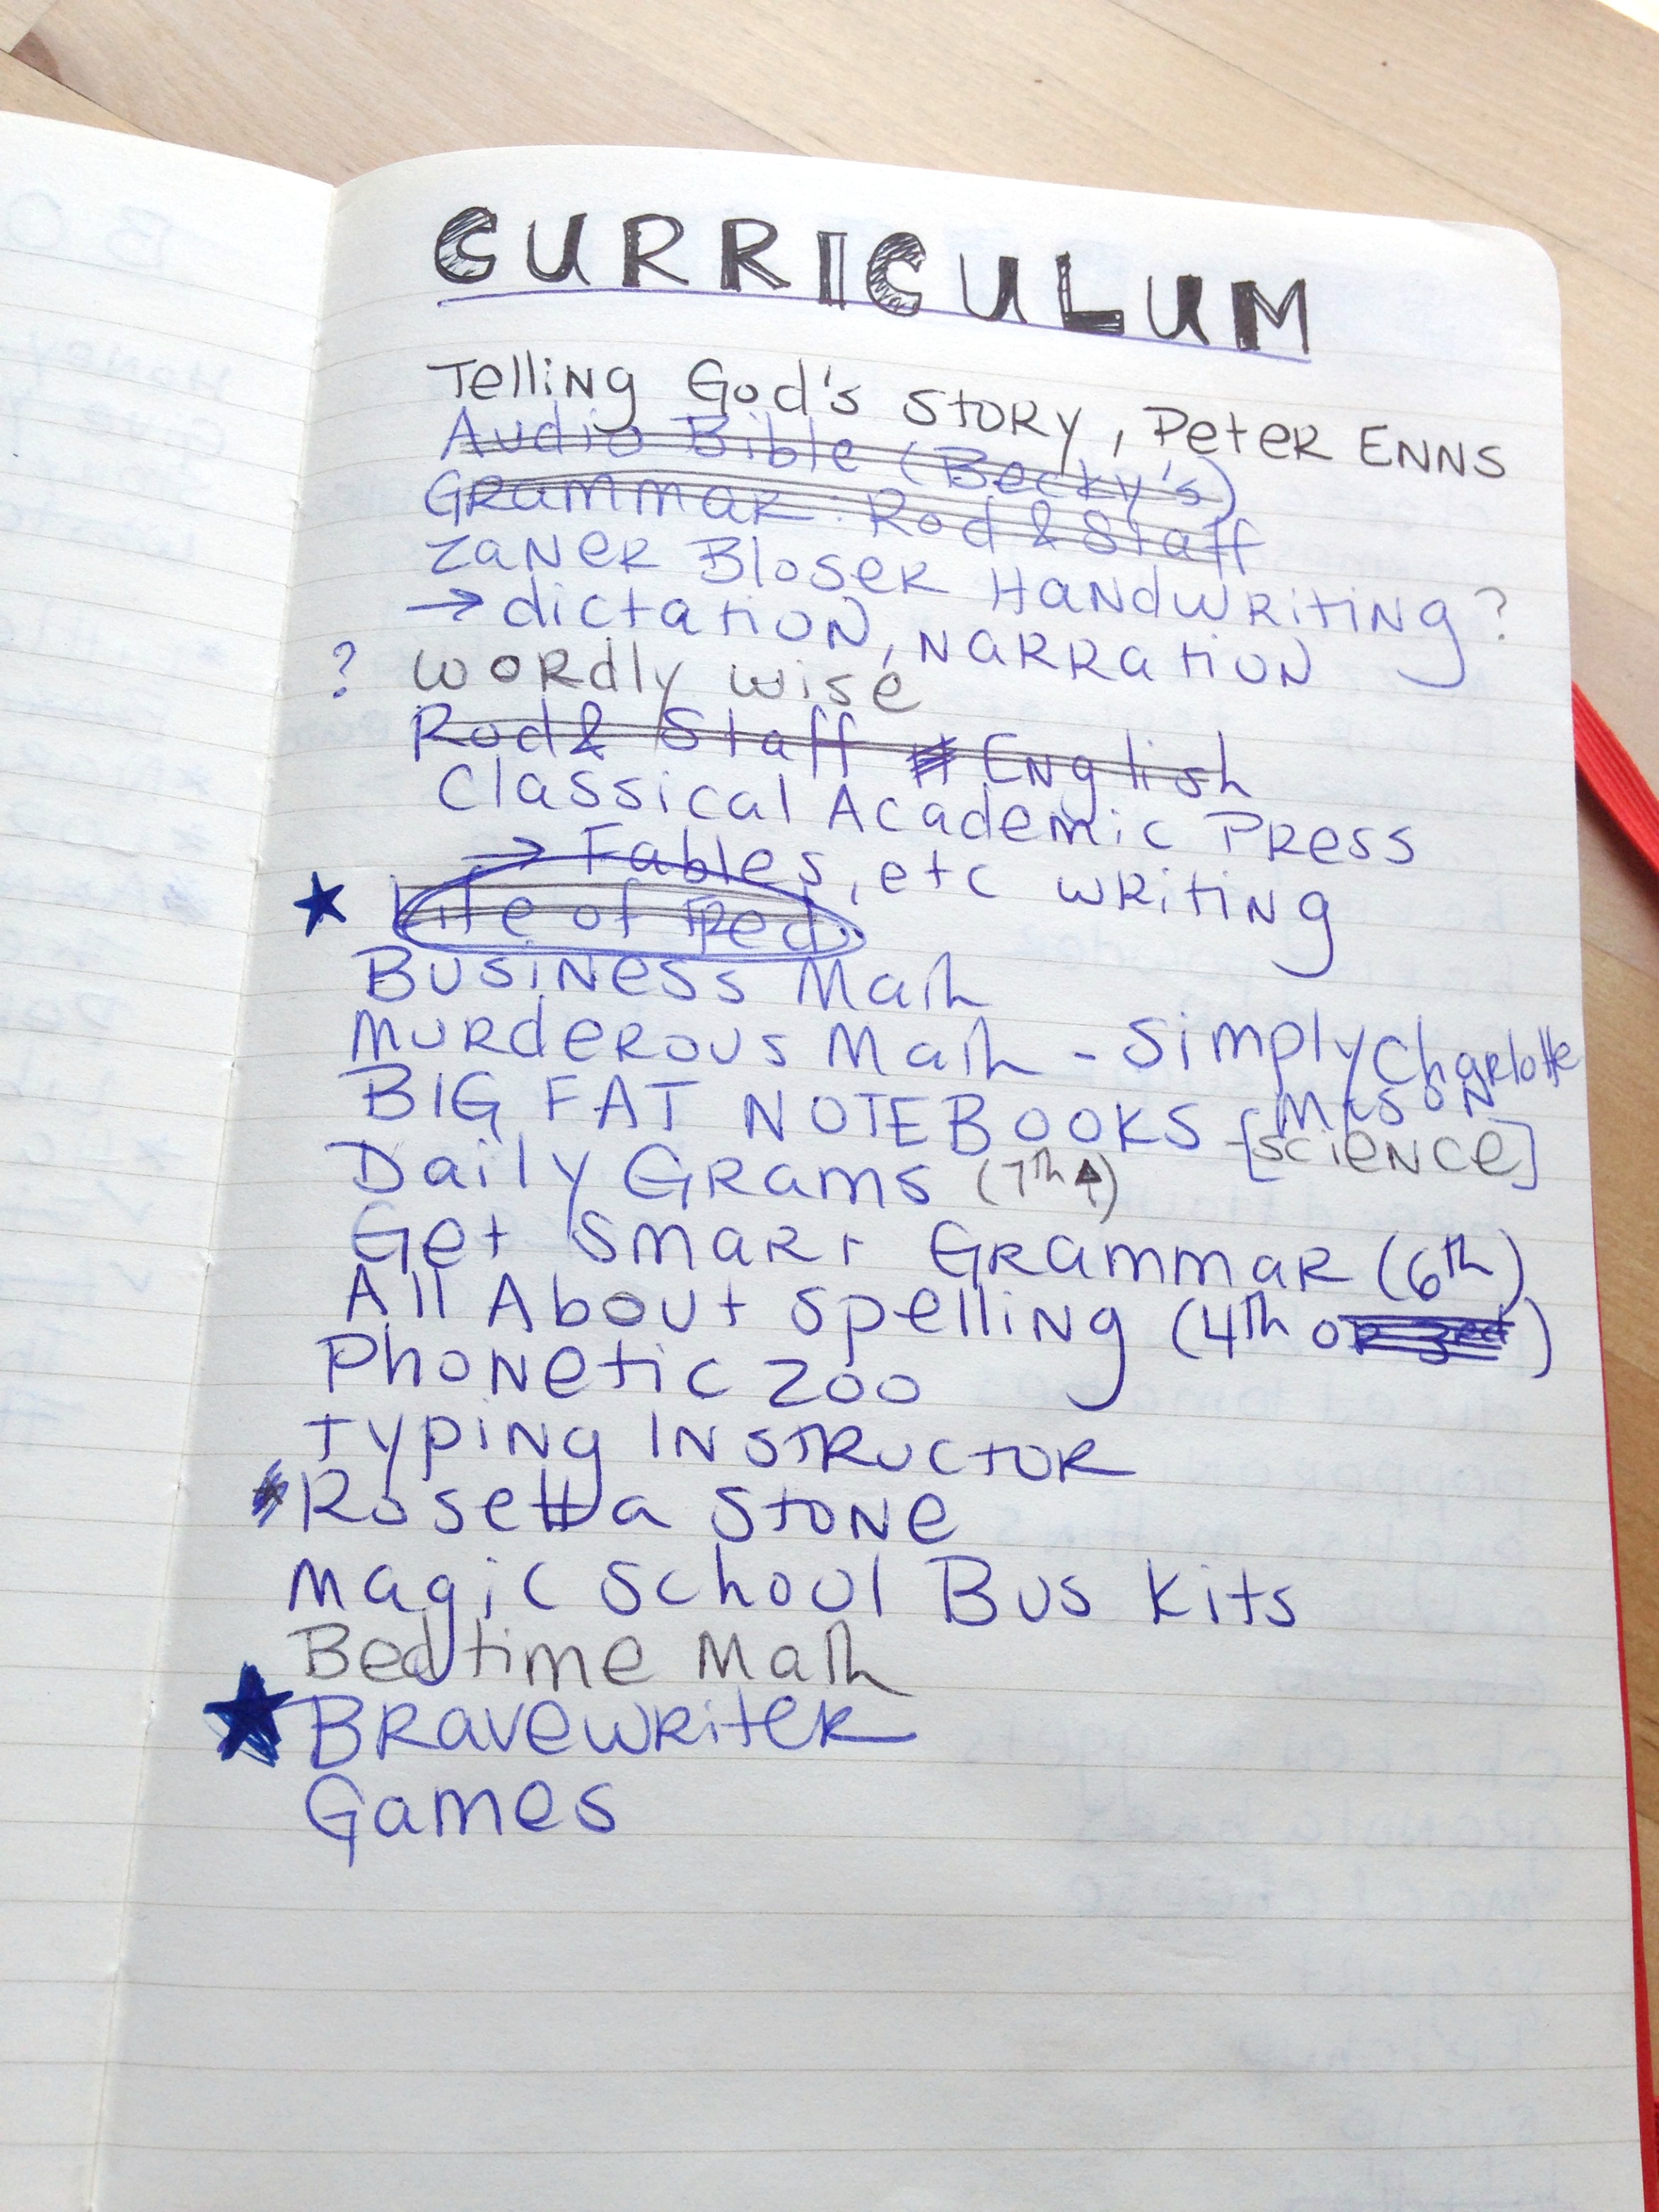 CURRICULUM
Telling God's Story, Peter Enns
Audio Bible (Becky's)
Grammar: Rod & Staff
Zaner Bloser Handwriting?
→ dictation, narration
? wordly wise
Rod & Staff English
Classical Academic Press
→ Fables, etc writing
★ Life of Fred
Business Math
Murderous Math - Simply Charlotte
Mason
BIG FAT NOTEBOOKS - [science]
Daily Grams (7th ↑)
Get Smart Grammar (6th)
All About Spelling (4th or 3rd)
Phonetic Zoo
Typing Instructor
Rosetta Stone
Magic School Bus Kits
Bedtime Math
★ Bravewriter
Games